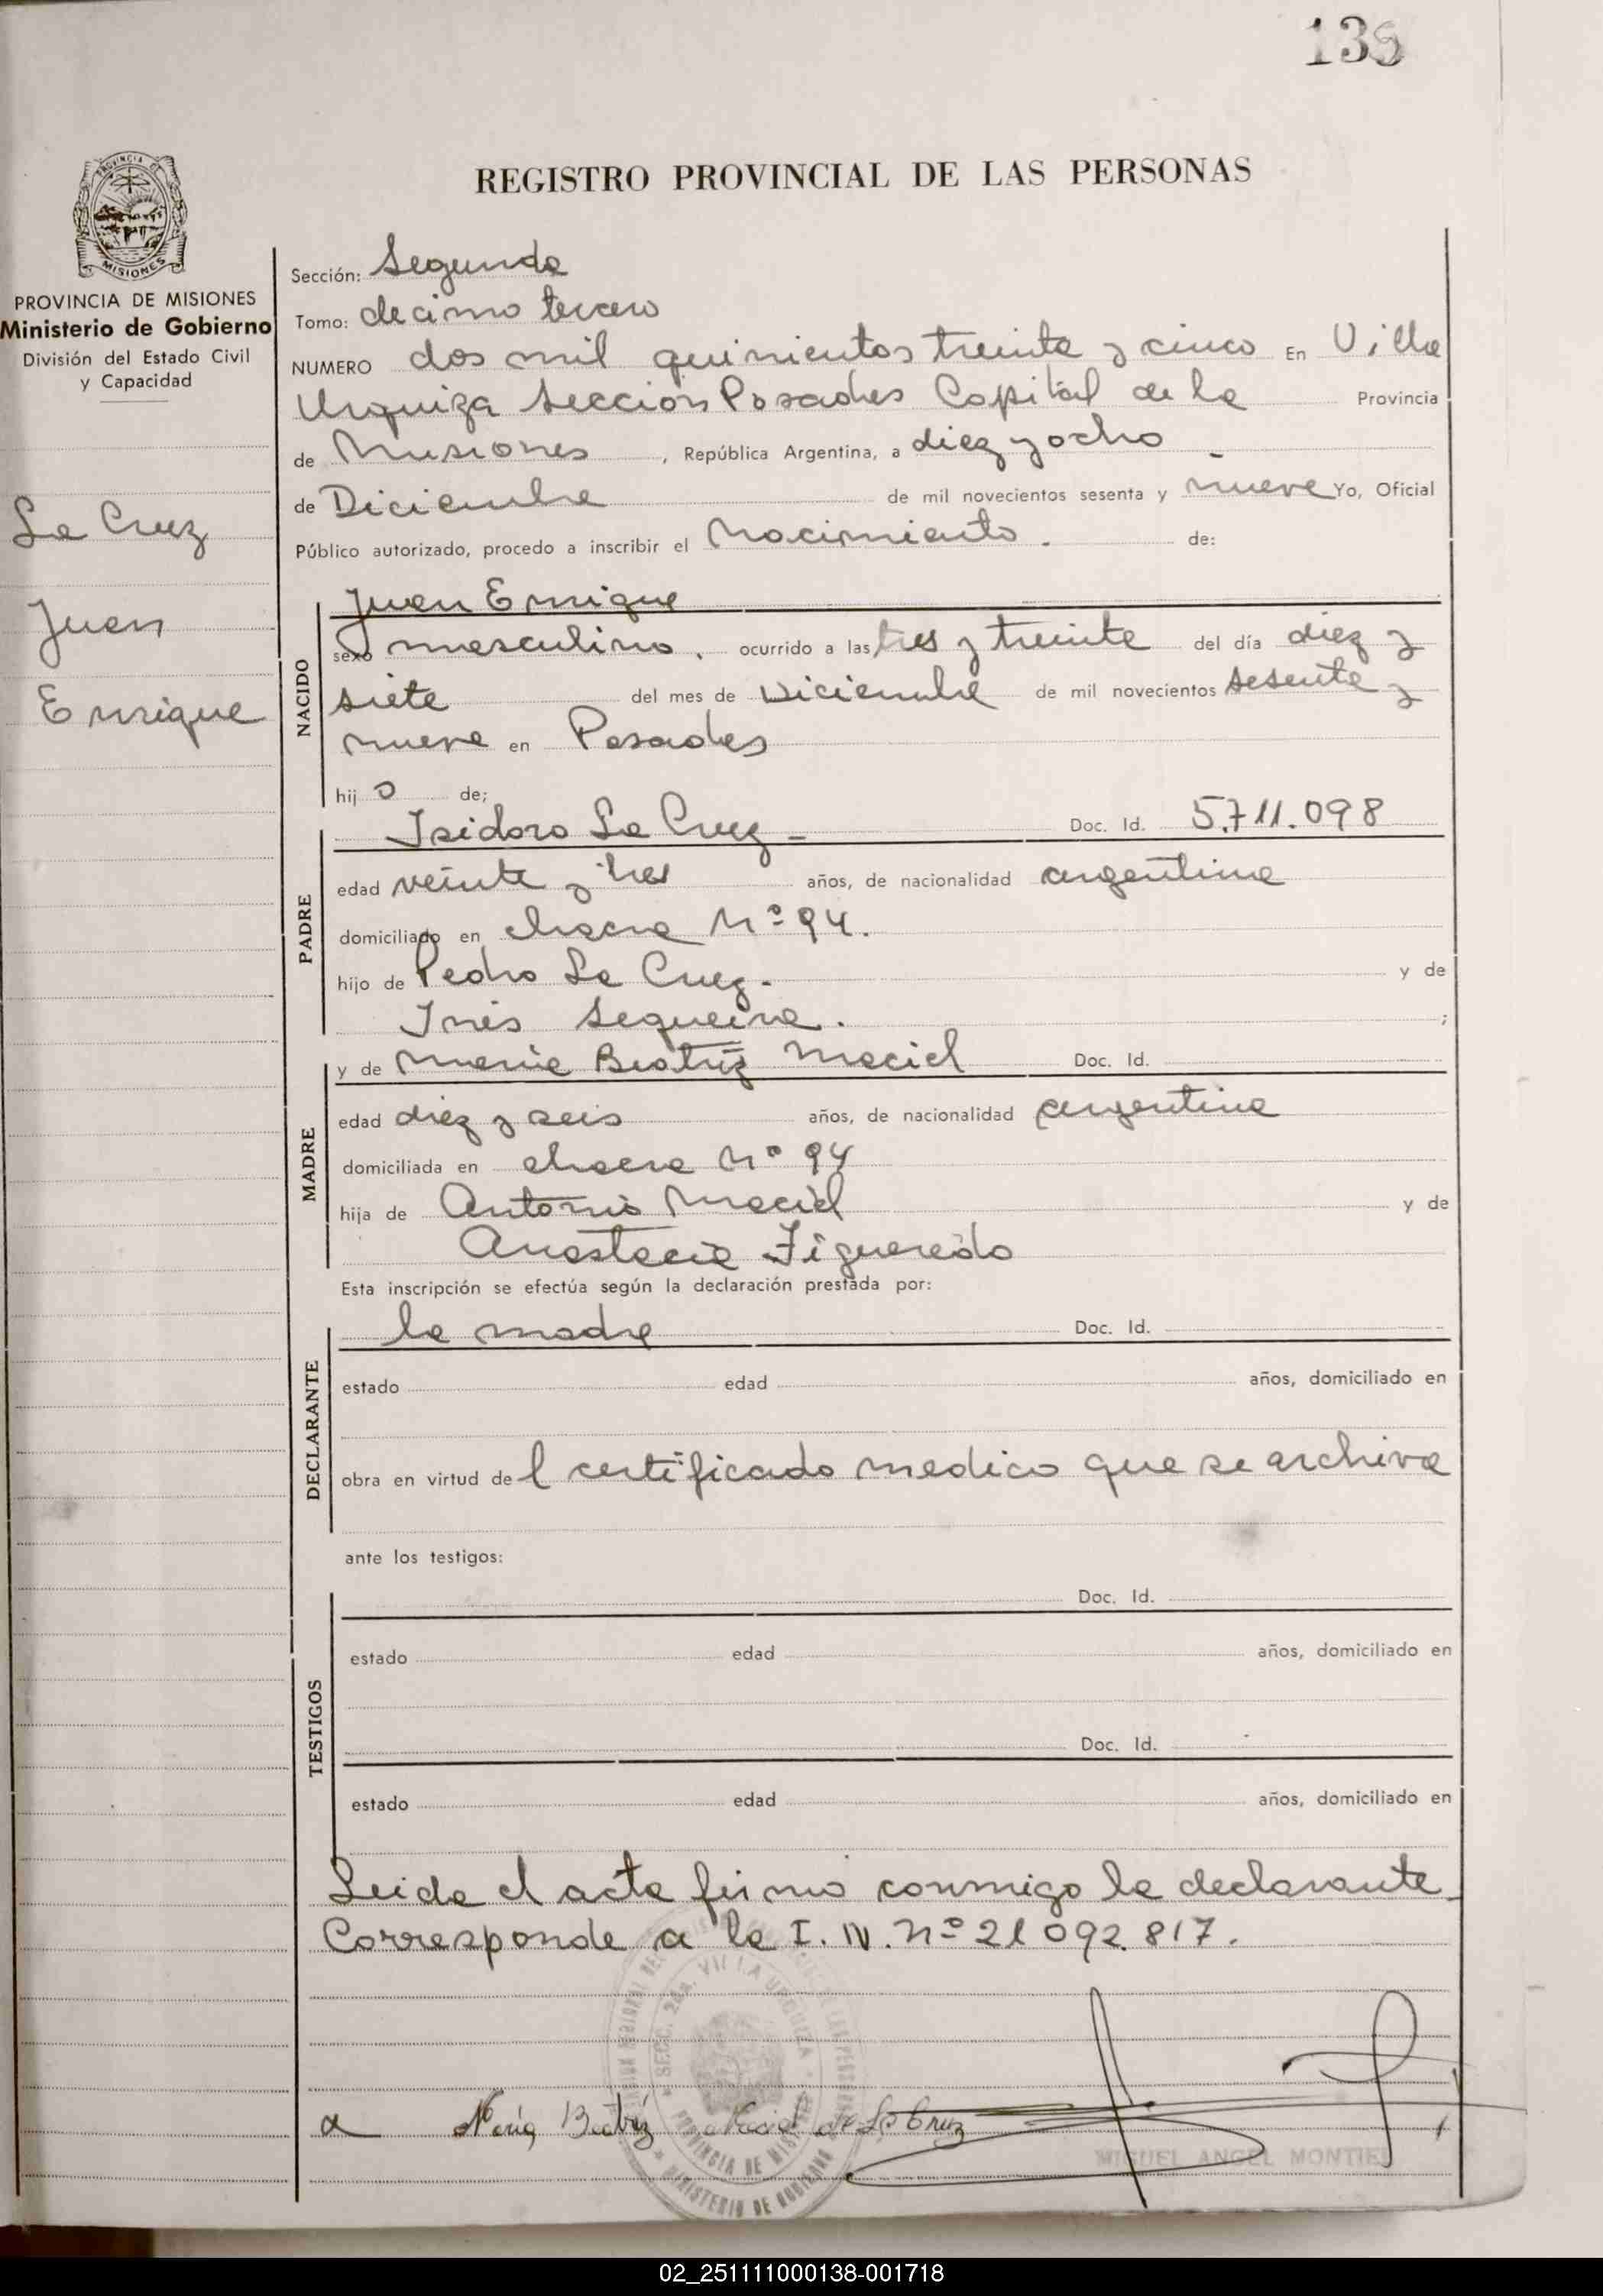 139
PROVINCIA DE MISIONES
MISIONES
PROVINCIA DE MISIONES
Ministerio de Gobierno
División del Estado Civil
y Capacidad
La Cruz
Juan
Enrique
REGISTRO PROVINCIAL DE LAS PERSONAS
Sección: Segunda
Tomo: decimo tercero
NUMERO dos mil quinientos treinta y cinco En Villa
Urquiza Sección Posadas Capital de la Provincia
de Misiones, República Argentina, a diez y ocho
de Diciembre de mil novecientos sesenta y nueve Yo, Oficial
Público autorizado, procedo a inscribir el Nacimiento. de:
NACIDO
Juan Enrique
sexo masculino. ocurrido a las tres y treinta del día diez y
siete del mes de Diciembre de mil novecientos sesenta y
nueve en Posadas
hijo de;
PADRE
Isidoro La Cruz - Doc. Id. 5.711.098
edad veinte y tres años, de nacionalidad argentina
domiciliado en chacra Nº 94.
hijo de Pedro La Cruz. y de
Inés Sequeira. ;
MADRE
y de Maria Beatriz Maciel Doc. Id.
edad diez y seis años, de nacionalidad argentina
domiciliada en chacra Nº 94
hija de Antonio Maciel y de
Anastacia Figueredo
Esta inscripción se efectúa según la declaración prestada por:
DECLARANTE
la madre Doc. Id.
estado edad años, domiciliado en
obra en virtud del certificado medico que se archiva
ante los testigos:
TESTIGOS
Doc. Id.
estado edad años, domiciliado en
Doc. Id.
estado edad años, domiciliado en
Leida el acta firma conmigo la declarante
Corresponde a la I. N. nº 21 092.817.
SECC. 2da. VILLA URQUIZA
PROVINCIA DE MISIONES
MINISTERIO DE GOBIERNO
a María Beatriz Maciel de La Cruz
MIGUEL ANGEL MONTIEL
02_251111000138-001718